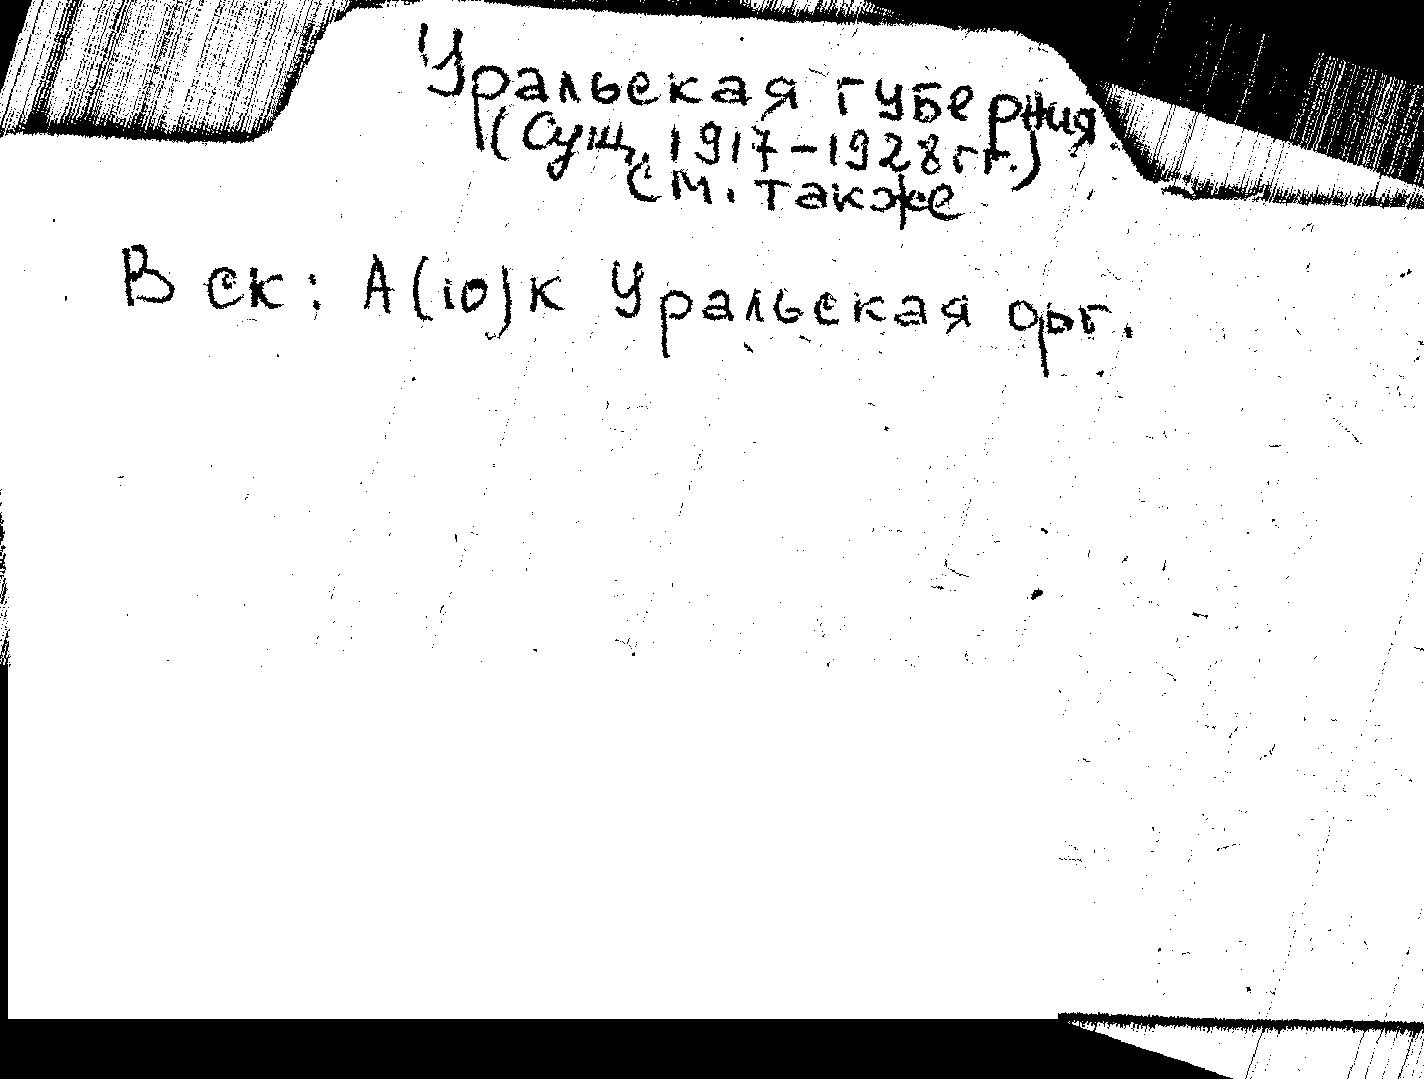 Уральская губерния
(Сущ. 1917-1928 гг.)
см. также
В ск: А(10)к Уральская орг.